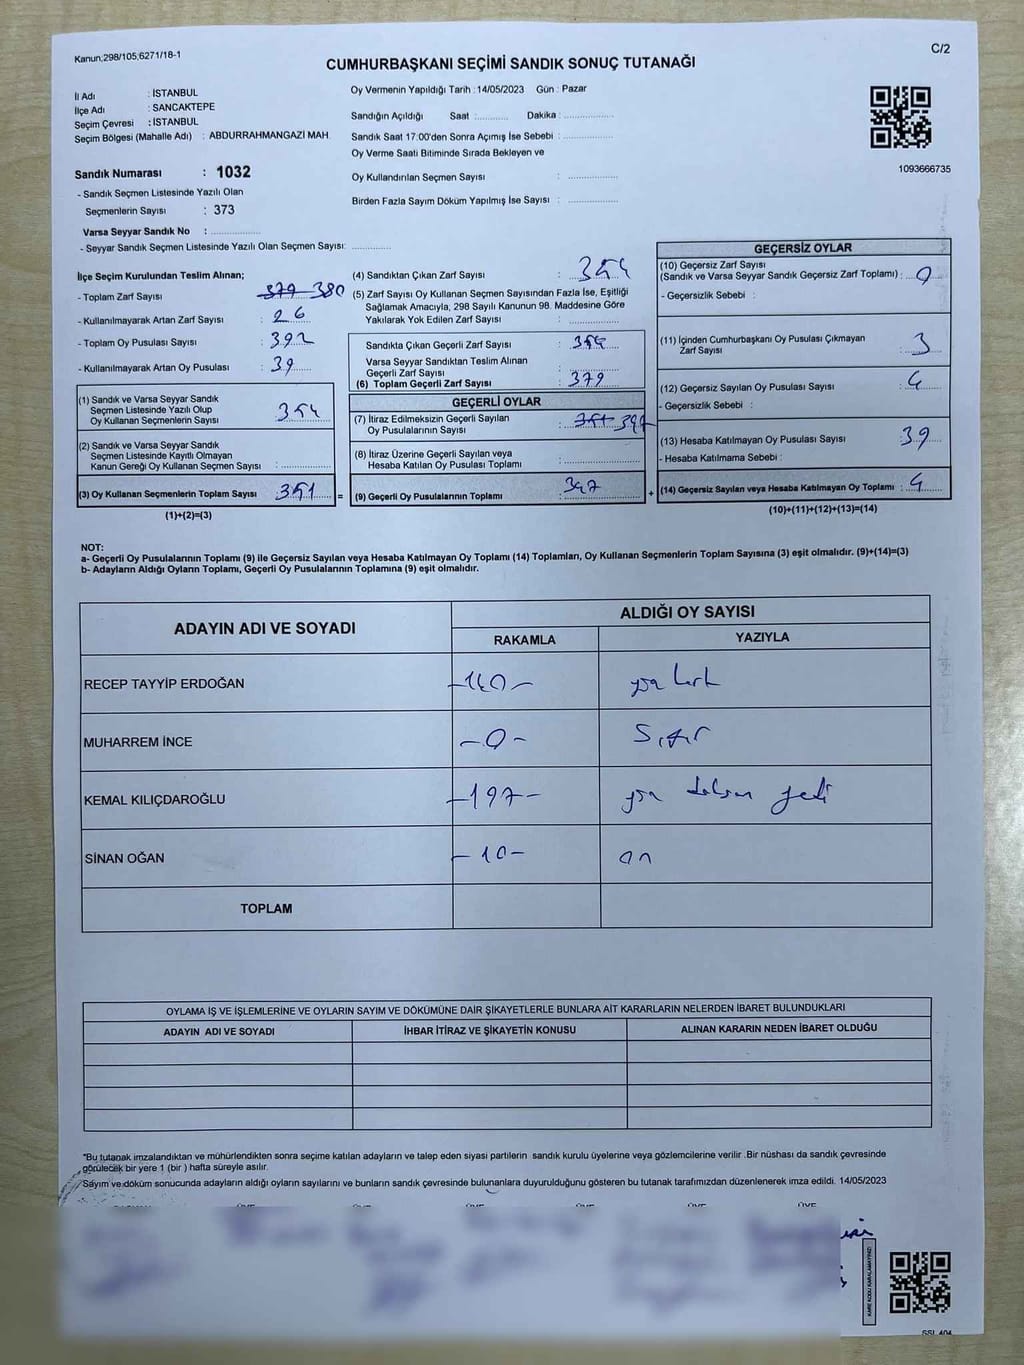 Kanun;298/105;6271/18-1
C/2
CUMHURBAŞKANI SEÇİMİ SANDIK SONUÇ TUTANAĞI
İl Adı : İSTANBUL
İlçe Adı : SANCAKTEPE
Seçim Çevresi : İSTANBUL
Seçim Bölgesi (Mahalle Adı) : ABDURRAHMANGAZİ MAH.
Sandık Numarası : 1032
- Sandık Seçmen Listesinde Yazılı Olan
Seçmenlerin Sayısı : 373
Varsa Seyyar Sandık No : ..............
- Seyyar Sandık Seçmen Listesinde Yazılı Olan Seçmen Sayısı: ............
Oy Vermenin Yapıldığı Tarih : 14/05/2023 Gün : Pazar
Sandığın Açıldığı Saat :.......... Dakika : ..............
Sandık Saat 17:00'den Sonra Açımış İse Sebebi : ..............
Oy Verme Saati Bitiminde Sırada Bekleyen ve
Oy Kullandırılan Seçmen Sayısı : ..............
Birden Fazla Sayım Döküm Yapılmış İse Sayısı : ..............
1093666735
İlçe Seçim Kurulundan Teslim Alınan;
- Toplam Zarf Sayısı 379 380
- Kullanılmayarak Artan Zarf Sayısı : 26
- Toplam Oy Pusulası Sayısı : 392
- Kullanılmayarak Artan Oy Pusulası : 39
(1) Sandık ve Varsa Seyyar Sandık
Seçmen Listesinde Yazılı Olup
Oy Kullanan Seçmenlerin Sayısı : 354
(2) Sandık ve Varsa Seyyar Sandık
Seçmen Listesinde Kayıtlı Olmayan
Kanun Gereği Oy Kullanan Seçmen Sayısı : ..............
(3) Oy Kullanan Seçmenlerin Toplam Sayısı : 351 =
(1)+(2)=(3)
(4) Sandıktan Çıkan Zarf Sayısı : 354
(5) Zarf Sayısı Oy Kullanan Seçmen Sayısından Fazla İse, Eşitliği
Sağlamak Amacıyla, 298 Sayılı Kanunun 98. Maddesine Göre
Yakılarak Yok Edilen Zarf Sayısı : ..............
Sandıkta Çıkan Geçerli Zarf Sayısı : 354
Varsa Seyyar Sandıktan Teslim Alınan
Geçerli Zarf Sayısı :
(6) Toplam Geçerli Zarf Sayısı : 379
GEÇERLİ OYLAR
(7) İtiraz Edilmeksizin Geçerli Sayılan
Oy Pusulalarının Sayısı : 351 347
(8) İtiraz Üzerine Geçerli Sayılan veya
Hesaba Katılan Oy Pusulası Toplamı : ..............
(9) Geçerli Oy Pusulalarının Toplamı : 347 +
GEÇERSİZ OYLAR
(10) Geçersiz Zarf Sayısı
(Sandık ve Varsa Seyyar Sandık Geçersiz Zarf Toplamı) : 0
- Geçersizlik Sebebi :
(11) İçinden Cumhurbaşkanı Oy Pusulası Çıkmayan
Zarf Sayısı : 3
(12) Geçersiz Sayılan Oy Pusulası Sayısı : 4
- Geçersizlik Sebebi :
(13) Hesaba Katılmayan Oy Pusulası Sayısı : 39
- Hesaba Katılmama Sebebi :
(14) Geçersiz Sayılan veya Hesaba Katılmayan Oy Toplamı : 4
(10)+(11)+(12)+(13)=(14)
NOT:
a- Geçerli Oy Pusulalarının Toplamı (9) ile Geçersiz Sayılan veya Hesaba Katılmayan Oy Toplamı (14) Toplamları, Oy Kullanan Seçmenlerin Toplam Sayısına (3) eşit olmalıdır. (9)+(14)=(3)
b- Adayların Aldığı Oyların Toplamı, Geçerli Oy Pusulalarının Toplamına (9) eşit olmalıdır.
ADAYIN ADI VE SOYADI
ALDIĞI OY SAYISI
RAKAMLA YAZIYLA
RECEP TAYYİP ERDOĞAN -140- yüz kırk
MUHARREM İNCE -0- Sıfır
KEMAL KILIÇDAROĞLU -197- yüz doksan yedi
SİNAN OĞAN -10- on
TOPLAM
OYLAMA İŞ VE İŞLEMLERİNE VE OYLARIN SAYIM VE DÖKÜMÜNE DAİR ŞİKAYETLERLE BUNLARA AİT KARARLARIN NELERDEN İBARET BULUNDUKLARI
ADAYIN ADI VE SOYADI İHBAR İTİRAZ VE ŞİKAYETİN KONUSU ALINAN KARARIN NEDEN İBARET OLDUĞU
*Bu tutanak imzalandıktan ve mühürlendikten sonra seçime katılan adayların ve talep eden siyasi partilerin sandık kurulu üyelerine veya gözlemcilerine verilir .Bir nüshası da sandık çevresinde
görülecek bir yere 1 (bir ) hafta süreyle asılır.
*Sayım ve döküm sonucunda adayların aldığı oyların sayılarını ve bunların sandık çevresinde bulunanlara duyurulduğunu gösteren bu tutanak tarafımızdan düzenlenerek imza edildi. 14/05/2023
ÜYE ÜYE ÜYE ÜYE ÜYE ÜYE
KARE KODU KARALAMAYINIZ!